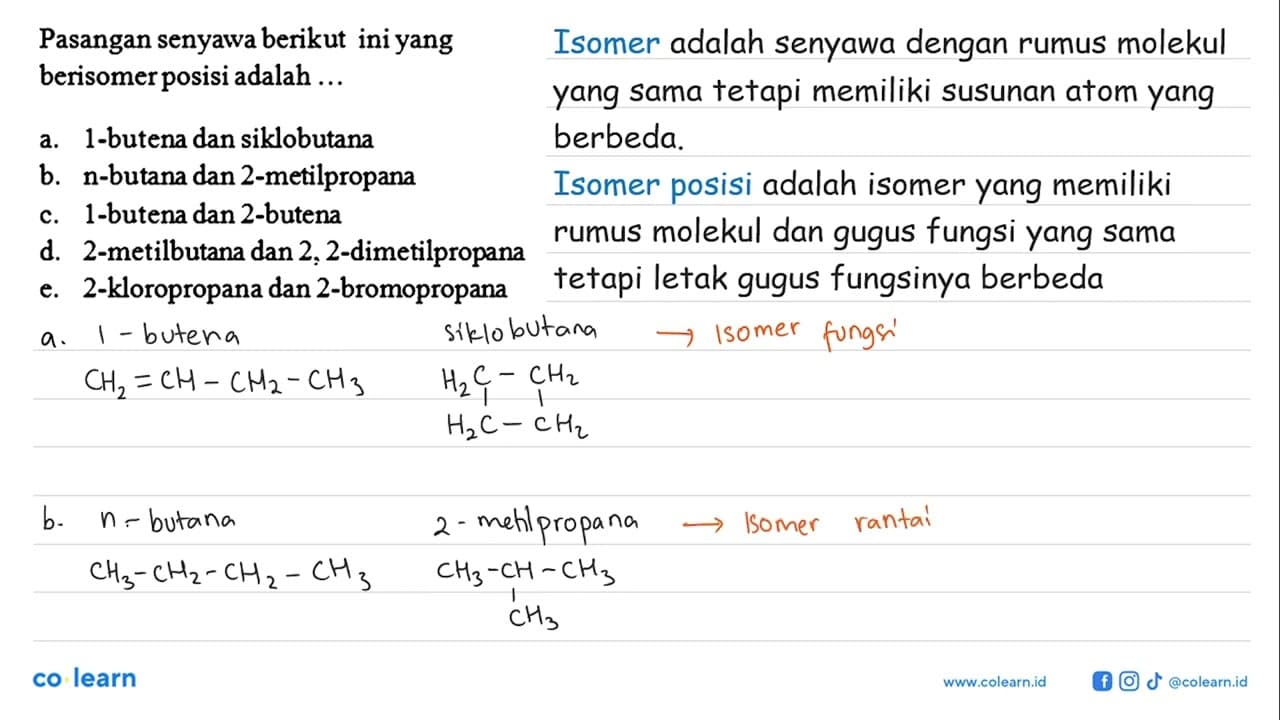 Pasangan senyawa berikut ini yang
berisomer posisi adalah ...
a. 1-butena dan siklobutana
b. n-butana dan 2-metilpropana
c. 1-butena dan 2-butena
d. 2-metilbutana dan 2, 2-dimetilpropana
e. 2-kloropropana dan 2-bromopropana
Isomer adalah senyawa dengan rumus molekul
yang sama tetapi memiliki susunan atom yang
berbeda.
Isomer posisi adalah isomer yang memiliki
rumus molekul dan gugus fungsi yang sama
tetapi letak gugus fungsinya berbeda
a. 1 - butena siklobutana → Isomer fungsi
CH₂ = CH - CH₂ - CH₃ H₂C - CH₂
| |
H₂C - CH₂
b. n - butana 2 - metilpropana → Isomer rantai
CH₃ - CH₂ - CH₂ - CH₃ CH₃ - CH - CH₃
|
CH₃
co learn
www.colearn.id @colearn.id